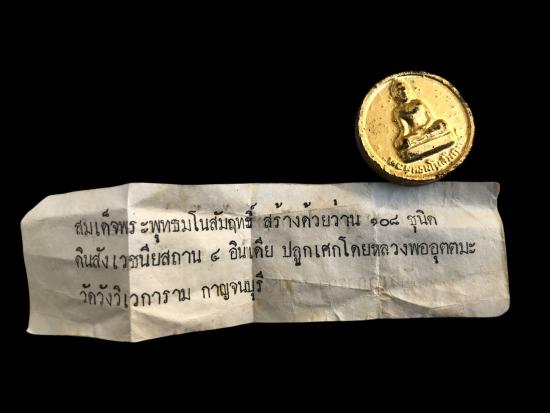 สมเด็จพระพุทธมโนสัมฤทธิ์ สร้างด้วยว่าน ๑๐๘ ชนิด
ดินสังเวชนียสถาน ๔ อินเดีย ปลุกเศกโดยหลวงพ่ออุตตมะ
วัดวังวิเวการาม กาญจนบุรี